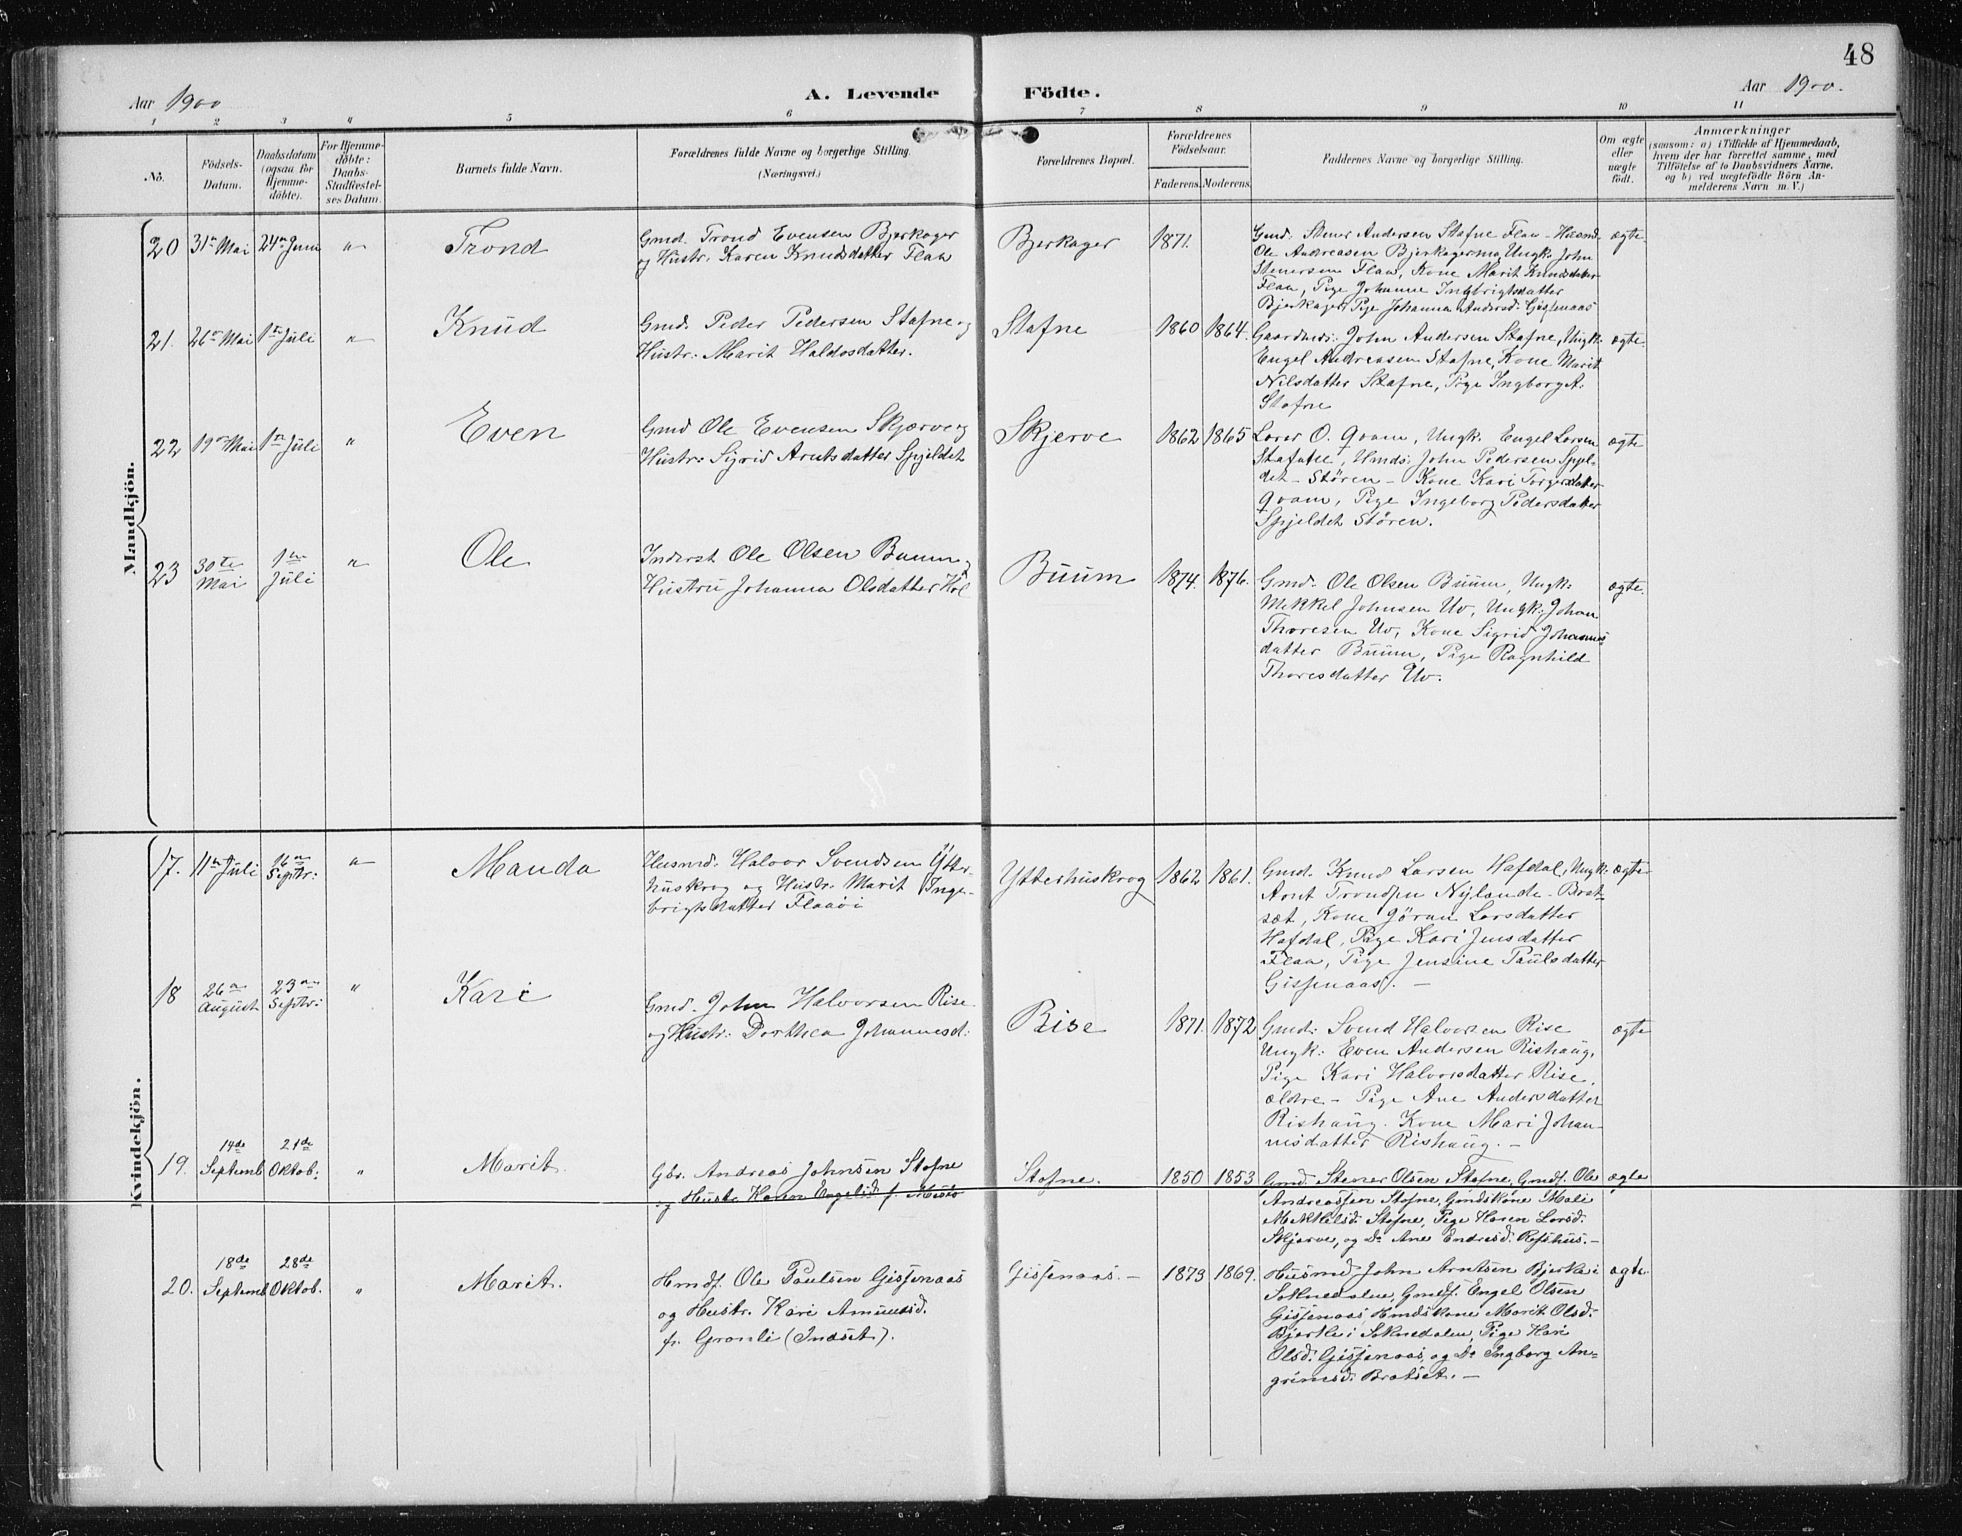 48
Aar 1900
A. Levende Födte.
Aar 1900.
1 2 3 4 5 6 7 8 9 10 11
No.
Födsels-
Datum.
Daabsdatum
(ogsaa for
Hjemme-
döbte).
For Hjemme-
döbte:
Daabs-
Stadfæstel-
ses Datum.
Barnets fulde Navn.
Forældrenes fulde Navne og borgerlige Stilling.
(Næringsvei.)
Forældrenes Bopæl.
Forældrenes
Födselsaar.
Faderens. Moderens.
Faddernes Navne og borgerlige Stilling.
Om ægte
eller
uægte
födt.
Anmærkninger
(saasom: a) i Tilfælde af Hjemmedaab,
hvem der har forrettet samme, med
Tilföielse af to Daabsvidners Navne,
og b) ved uægtefödte Börn An-
melderens Navn m. V.)
Mandkjön.
20 31te Mai 24de Juni " Trond
Gmd. Trond Evensen Bjerkager
og Hustr. Karen Knudsdatter Flaa
Bjerkager 1871.
Gmd. Stener Andersen Stafne Flaa - Husmd.
Ole Andreasen Bjerkagermo, Ungk: John
Stenersen Flaa, Kone Marit Knudsdatter
Flaa, Pige Johanne Ingbrigtsdatter
Bjerkager, Pige Johanna Andersd: Gisfenaas
ægte
21. 26de Mai 1ste Juli " Knud
Gmd. Peder Pedersen Stafne og
Hustr: Marit Haldosdatter.
Stafne 1860 1864.
Gaardmds: John Andersen Stafne, Ungk:
Engel Andreasen Stafne, Kone Marit
Nilsdatter Stafne, Pige Ingborg A:
Stafne
ægte.
22 19de Mai 1ste Juli " Even
Gmd Ole Evensen Skjerve og
Hustr: Sigrid Arntsdatter Spjeldet
Skjerve 1862 1865
Lærer O. Qvam, Ungk. Engel Larsen
Stafne, Hmds: John Pedersen Spjel-
det - Støren - Kone Kari Torgersdatter
Qvam, Pige Ingeborg Pedersdatter
Spjeldet Støren.
ægte
23 30te Mai 1ste Juli " Ole
Inderst Ole Olsen Buum og
Hustru Johanna Olsdatter Hol
Buum 1874. 1876.
Gmd. Ole Olsen Buum, Ungk:
Mekkel Johnsen Uv, Ungk: Johan
Thoresen Uv, Kone Sigrid Johannes
datter Buum, Pige Ragnhild
Thoresdatter Uv.
ægte.
Kvindekjön.
17. 11te Juli 16de Septbr: " Manda
Husmd. Halvor Svendsen Ytter-
huskrog og Hustr. Marit Inge-
brigtsdatter Flaaöi
Ytterhuskrog 1862 1861.
Gmd. Knud Larsen Hafdal, Ungk:
Arnt Trondsen Nylande - Brat-
sæt, Kone Göran Larsdatter
Hafdal, Pige Kari Jensdatter
Flaa, Pige Jensine Paulsdatter
Gisfenaas. -
ægte
18 26de August 23de Septbr: " Kari
Gmd. John Halvorsen Rise
og Hustr: Dorthea Johannesd:
Rise 1871. 1872
Gmd: Svend Halvorsen Rise
Ungk: Even Andersen Rishaug,
Pige Kari Halvorsdatter Rise,
ældre - Pige Ane Andersdatter
Rishaug. Kone Mari Johan-
nesdatter Rishaug. -
ægte
19. 14de Septemb 21de Oktob: " Marit.
Gbr. Andreas Johnsen Stofne
og Hustr Karen Engelsd. f.
Stofne. 1850 1853
Gmd. Stener Olsen Stofne, Gmdf. Ole
Andreassen Stofne, Gmdskone Mali
Mekkelsd: Stofne, Pige Haren Larsd.
Skjerve, og Do Ane Endresd. Refshus. -
ægte
20. 18de Septemb 28de Oktob. " Marit.
Hmdf. Ole Paulsen Gisfenaas
og Hustr. Kari Amundsd.
fr. Gronli (Indset).
Gisfenaas. - 1873 1869.
Husmd John Arntsen Bjerke i
Soknedalen, Gmdf. Engel Olsen
Gisfenaas, Hmdskone Marit Olsd.
Bjerke i Soknedalen, Pige Kari
Olsd. Gisfenaas, og Do Ingborg An-
grimsd. Bratset. -
ægte.